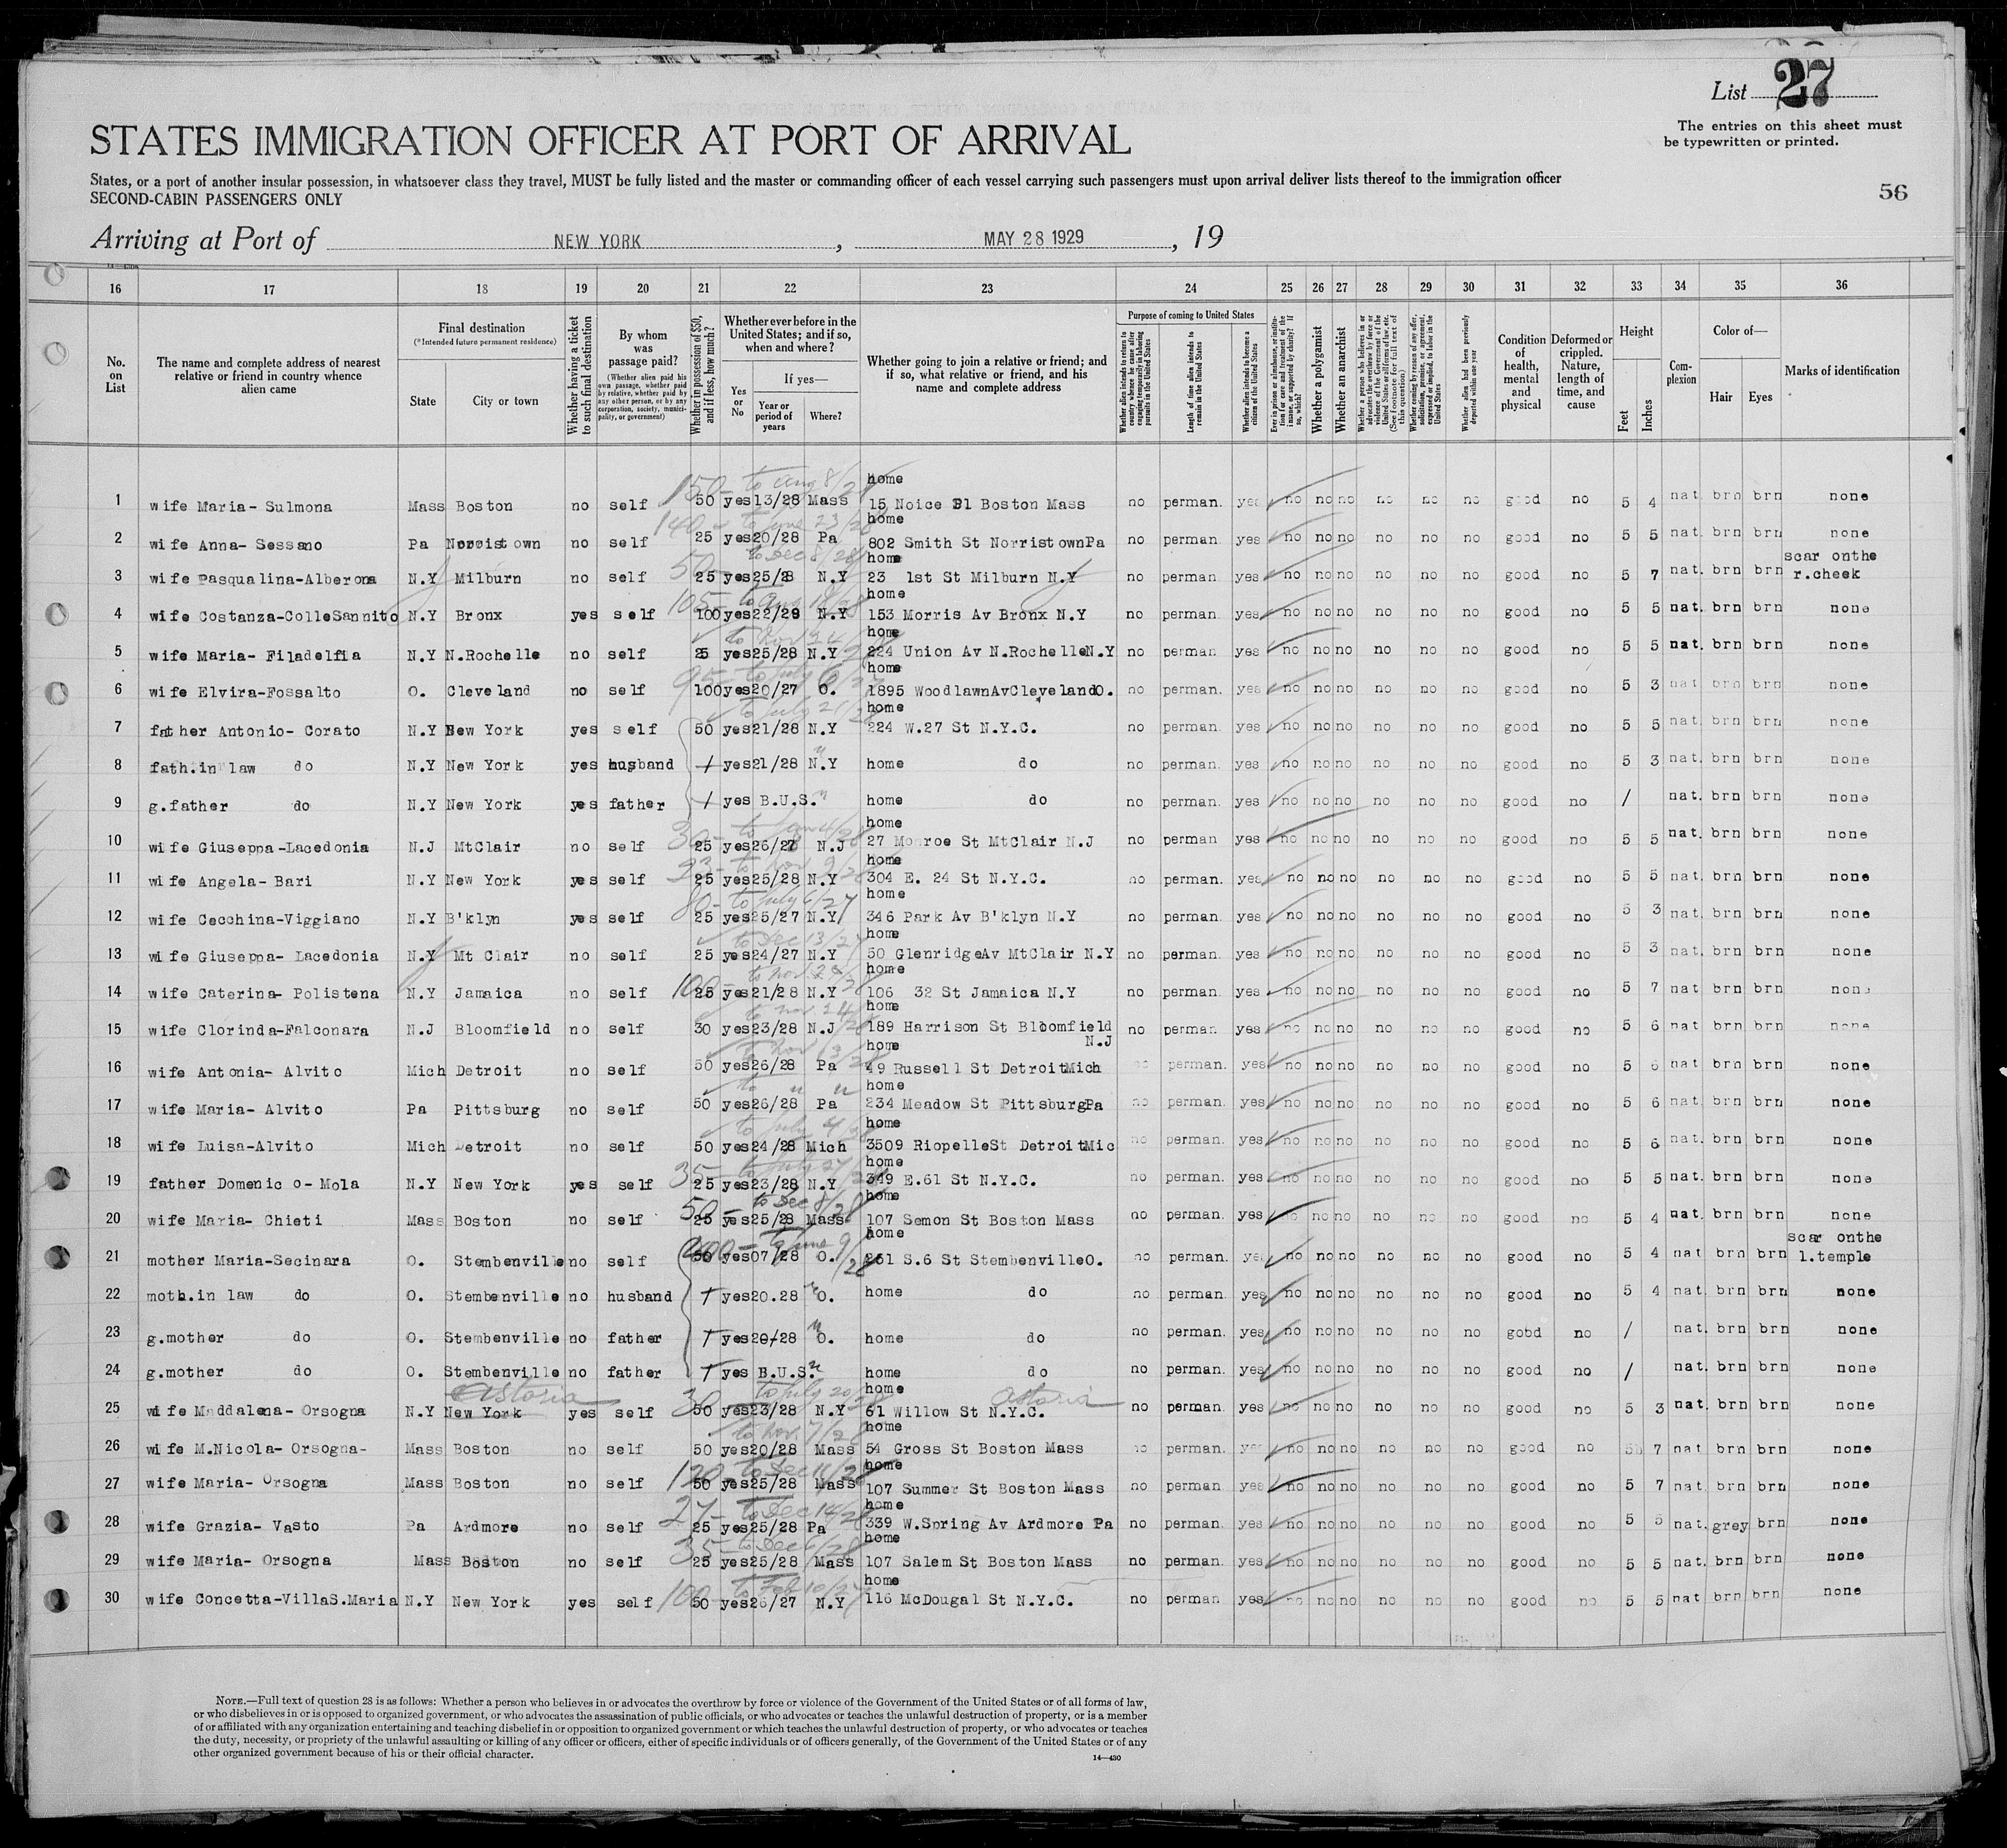 List 27
The entries on this sheet must
be typewritten or printed.
STATES IMMIGRATION OFFICER AT PORT OF ARRIVAL
States, or a port of another insular possession, in whatsoever class they travel, MUST be fully listed and the master or commanding officer of each vessel carrying such passengers must upon arrival deliver lists thereof to the immigration officer
SECOND-CABIN PASSENGERS ONLY
56
Arriving at Port of NEW YORK , MAY 28 1929 , 19
16 17 18 19 20 21 22 23 24 25 26 27 28 29 30 31 32 33 34 35 36
No. on List
The name and complete address of nearest relative or friend in country whence alien came
Final destination
(*Intended future permanent residence)
State City or town
Whether having a ticket to such final destination
By whom was passage paid?
(Whether alien paid his own passage, whether paid by relative, whether paid by any other person, or by any corporation, society, municipality, or government)
Whether in possession of $50, and if less, how much?
Whether ever before in the United States; and if so, when and where?
Yes or No
If yes—
Year or period of years Where?
Whether going to join a relative or friend; and if so, what relative or friend, and his name and complete address
Purpose of coming to United States
Whether alien intends to return to country whence he came after engaging temporarily in laboring pursuits in the United States
Length of time alien intends to remain in the United States
Whether alien intends to become a citizen of the United States
Ever in prison or almshouse, or institution for care and treatment of the insane, or supported by charity? If so, which?
Whether a polygamist
Whether an anarchist
Whether a person who believes in or advocates the overthrow by force or violence of the Government of the United States or all forms of law, etc. (See footnote for full text of this question)
Whether coming by reason of any offer, solicitation, promise, or agreement, expressed or implied, to labor in the United States
Whether alien had been previously deported within one year
Condition of health, mental and physical
Deformed or crippled. Nature, length of time, and cause
Height
Feet Inches
Complexion
Color of—
Hair Eyes
Marks of identification
1 wife Maria- Sulmona Mass Boston no self 150- 50 yes 13/28 Mass to Aug 8/28 home 15 Noice Pl Boston Mass no perman. yes no no no no no no good no 5 4 nat brn brn none
2 wife Anna- Sessano Pa Norristown no self 140- 25 yes 20/28 Pa to June 23/28 home 802 Smith St Norristown Pa no perman. yes no no no no no no good no 5 5 nat. brn brn none
3 wife Pasqualina-Alberona N.Y Milburn no self 50- 25 yes 25/28 N.Y to Dec 8/28 home 23 1st St Milburn N.Y no perman. yes no no no no no no good no 5 7 nat. brn brn scar onthe r.cheek
4 wife Costanza-ColleSannito N.Y Bronx yes self 105- 100 yes 22/28 N.Y home 153 Morris Av Bronx N.Y no perman. yes no no no no no no good no 5 5 nat. brn brn none
5 wife Maria- Filadelfia N.Y N.Rochelle no self 25 yes 25/28 N.Y to Nov 24 home 224 Union Av N.Rochelle N.Y no perman yes no no no no no no good no 5 5 nat. brn brn none
6 wife Elvira-Fossalto O. Cleveland no self 95- 100 yes 20/27 O. home 1895 WoodlawnAvCleveland O. no perman. yes no no no no no no good no 5 3 nat brn brn none
7 father Antonio- Corato N.Y New York yes self 50 yes 21/28 N.Y to July 21/28 home 224 W.27 St N.Y.C. no perman. yes no no no no no no good no 5 5 nat. brn brn none
8 fath.in law do N.Y New York yes husband yes 21/28 N.Y home do no perman. yes no no no no no no good no 5 3 nat. brn brn none
9 g.father do N.Y New York yes father yes B.U.S. home do no perman. yes no no no no no no good no / nat. brn brn none
10 wife Giuseppa-Lacedonia N.J MtClair no self 30- 25 yes 26/27 N.J home 27 Monroe St MtClair N.J no perman yes no no no no no no good no 5 5 nat. brn brn none
11 wife Angela- Bari N.Y New York yes self 25 yes 25/28 N.Y home 304 E. 24 St N.Y.C. no perman. yes no no no no no no good no 5 5 nat. brn brn none
12 wife Cecchina-Viggiano N.Y B'klyn yes self 80- 25 yes 25/27 N.Y to July 6/27 home 346 Park Av B'klyn N.Y no perman. yes no no no no no no good no 5 3 nat. brn brn none
13 wife Giuseppa- Lacedonia N.Y Mt Clair no self 25 yes 24/27 N.Y to Dec 13/27 home 50 GlenridgeAv MtClair N.Y no perman. yes no no no no no no good no 5 3 nat. brn brn none
14 wife Caterina- Polistena N.Y Jamaica no self 100- 25 yes 21/28 N.Y home 106 32 St Jamaica N.Y no perman. yes no no no no no no good no 5 7 nat brn brn none
15 wife Clorinda-Falconara N.J Bloomfield no self 30 yes 23/28 N.J to nov 24/28 home 189 Harrison St Bloomfield N.J no perman. yes no no no no no no good no 5 6 nat brn brn none
16 wife Antonia- Alvito Mich Detroit no self 50 yes 26/28 Pa home 49 Russell St Detroit Mich no perman. yes no no no no no no good no 5 6 nat brn brn none
17 wife Maria- Alvito Pa Pittsburg no self 50 yes 26/28 Pa to " " home 234 Meadow St Pittsburg Pa no perman. yes no no no no no no good no 5 6 nat. brn brn none
18 wife Luisa-Alvito Mich Detroit no self 50 yes 24/28 Mich home 3509 RiopelleSt Detroit Mic no perman. yes no no no no no no good no 5 6 nat. brn brn none
19 father Domenico- Mola N.Y New York yes self 35- 25 yes 23/28 N.Y to July 27/28 home 349 E.61 St N.Y.C. no perman. yes no no no no no no good no 5 5 nat. brn brn none
20 wife Maria- Chieti Mass Boston no self 50- 25 yes 25/28 Mass to Dec 8/28 home 107 Semon St Boston Mass no perman. yes no no no no no no good no 5 4 nat. brn brn none
21 mother Maria-Secinara O. Stembenville no self 50 yes 07/28 O. to June 9/28 home 261 S.6 St Stembenville O. no perman. yes no no no no no no good no 5 4 nat brn brn scar onthe l.temple
22 moth.in law do O. Stembenville no husband yes 20.28 O. home do no perman. yes no no no no no no good no 5 4 nat. brn brn none
23 g.mother do O. Stembenville no father yes 20/28 O. home do no perman. yes no no no no no no gotd no / nat. brn brn none
24 g.mother do O. Stembenville no father yes B.U.S. home do no perman. yes no no no no no no good no / nat. brn brn none
25 wife Maddalena- Orsogna N.Y New York Astoria yes self 30 50 yes 23/28 N.Y to July 20/28 home 61 Willow St N.Y.C. Astoria no perman. yes no no no no no no good no 5 3 nat. brn brn none
26 wife M.Nicola- Orsogna- Mass Boston no self 50 yes 20/28 Mass to Nov. 7/28 home 54 Gross St Boston Mass no perman. yes no no no no no no good no 5 7 nat brn brn none
27 wife Maria- Orsogna Mass Boston no self 120- 50 yes 25/28 Mass home 107 Summer St Boston Mass no perman yes no no no no no no good no 5 7 nat. brn brn none
28 wife Grazia- Vasto Pa Ardmore no self 27- 25 yes 25/28 Pa to Dec 14/28 home 339 W.Spring Av Ardmore Pa no perman. yes no no no no no no good no 5 5 nat. grey brn none
29 wife Maria- Orsogna Mass Boston no self 35- 25 yes 25/28 Mass to Dec 6/28 home 107 Salem St Boston Mass no perman. yes no no no no no no good no 5 5 nat. brn brn none
30 wife Concetta-VillaS.Maria N.Y New York yes self 100- 50 yes 26/27 N.Y to Feb 10/27 home 116 McDougal St N.Y.C. no perman yes no no no no no no good no 5 5 nat brn brn none
NOTE.—Full text of question 28 is as follows: Whether a person who believes in or advocates the overthrow by force or violence of the Government of the United States or of all forms of law,
or who disbelieves in or is opposed to organized government, or who advocates the assassination of public officials, or who advocates or teaches the unlawful destruction of property, or is a member
of or affiliated with any organization entertaining and teaching disbelief in or opposition to organized government or which teaches the unlawful destruction of property, or who advocates or teaches
the duty, necessity, or propriety of the unlawful assaulting or killing of any officer or officers, either of specific individuals or of officers generally, of the Government of the United States or of any
other organized government because of his or their official character.
14—430